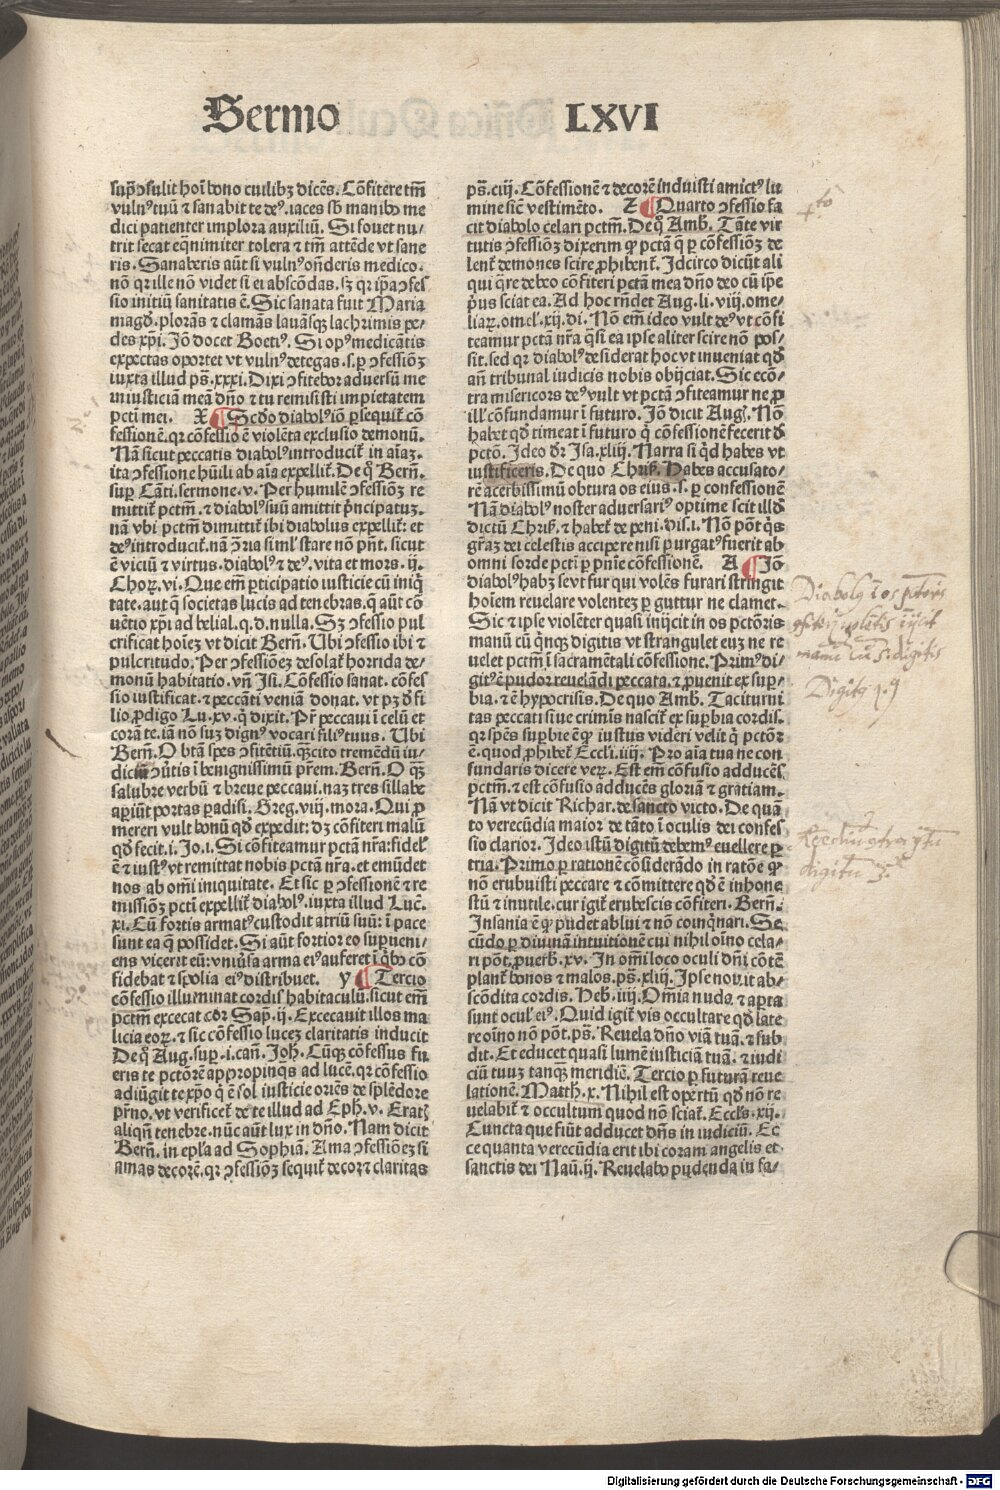 Sermo LXVI
sup̄ ↄsulit hoı̄ bono cuilibꝫ dicēs. Cōfitere tm̄
vulnꝰ tuū ⁊ sanabit te deꝰ. iaces sb̄ manibꝰ me
dici patienter implora auxiliū. Si fouet nu/
trit secat eq̄nimiter tolera ⁊ tm̄ attēde vt sane
ris. Sanaberis aūt si vulnꝰ oñderis medico.
nō qꝛ ille nō videt si ei abscōdas. sꝫ qꝛ ip̄a ↄfes
sio initiū sanitatis ē. Sic sanata fuit Maria
magd̄. plorās ⁊ clamās lauāsqꝫ lachrimis pe/
des xp̄i. Jō docet Boetiꝰ. Si opꝰ medicātis
expectas oportet vt vulnꝰ detegas .s. ꝑ ↄfessiōꝫ
iuxta illud pš. xxxi. Dixi ↄfitebor aduersū me
iniusticiā meā dn̄o ⁊ tu remisisti impietatem
pcti mei. X ¶ Scd̄o diabolꝰ iō ꝑsequit̄ cō
fessionē. qꝛ cōfessio ē violēta exclusio demonū.
Nā sicut peccatis diabolꝰ introducit̄ in aı̄aꝫ.
ita ↄfessione hūili ab aı̄a expellit̄. De q̊ Bern̄.
sup̄ Cāti. sermone .v. Per humilē ↄfessiōꝫ re
mittit̄ pctm̄. ⁊ diabolꝰ suū amittit p̄ncipatuꝫ.
nā vbi pctm̄ dimittit̄ ibi diabolus expellit̄: et
deꝰ introducit̄. nā ↄ̄ria sil̄ stare nō pn̄t. sicut
ē viciū ⁊ virtus. diabolꝰ ⁊ deꝰ. vita et mors. ij.
Choꝝ. vi. Que em̄ ꝑticipatio iusticie cū iniq̇
tate. aut q̄ societas lucis ad tenebras. q̄ aūt cō
uētio xp̄i ad belial. q. d. nulla. Sꝫ ↄfessio pul
crificat hoı̄eꝫ vt dicit Bern̄. Ubi ↄfessio ibi ⁊
pulcritudo. Per ↄfessiōeꝫ desolat̄ horrida de/
monū habitatio. vn̄ Jsi. Cōfessio sanat. cōfes
sio iustificat. ⁊ peccāti veniā donat. vt pꝫ d̄ fi
lio ꝓdigo Lu. xv. q̇ dixit. Pr̄ peccaui ı̄ celū et
corā te. iā nō suꝫ dignꝰ vocari filiꝰ tuus. Ubi
Bern̄. O btā̄ spes ↄfitētiū. qꝫcito tremēdū iu/
diciū ↄ̄utis ı̄ benignissimū pr̄em. Bern̄. O q̄ꝫ
salubre verbū ⁊ breue peccaui. naꝫ tres sillabe
apiūt portas ꝑadisi. Greg. viij. mora. Qui ꝓ
mereri vult bonū qd̄ expedit: dꝫ cōfiteri malū
qd̄ fecit. i. Jo. i. Si cōfiteamur pctā nr̄a: fidel̓
ē ⁊ iustꝰ vt remittat nobis pctā nr̄a. et emūdet
nos ab om̄i iniquitate. Et sic ꝑ ↄfessionē ⁊ re
missiōꝫ pcti expellit̄ diabolꝰ. iuxta illud Luc̄.
xi. Cū fortis armatꝰ custodit atriū suū: ı̄ pace
sunt ea q̄ possidet. Si aūt fortior eo supueni/
ens vicerit eū: vniūsa arma eiꝰ auferet ı̄ q̇bꝰ cō
fidebat ⁊ spolia eiꝰ distribuet. y ¶ Tercio
cōfessio illuminat cordis habitaculū. sicut em̄
pctm̄ excecat cor Sap̄. ij. Excecauit illos ma
licia eoꝝ. ⁊ sic cōfessio luceꝫ claritatis inducit
De q̊ Aug. sup̄ .i. can̄. Joh̄. Cūqꝫ cōfessus fu
eris te pctōrē appropinqs ad lucē. qꝛ cōfessio
adiūgit te xp̄o q̇ ē sol iusticie oriēs de splēdore
pr̄no. vt verificet̄ de te illud ad Eph̄. v. Eratꝭ
aliqn̄ tenebre. nūc aūt lux in dn̄o. Nam dicit
Bern̄. in epl̄a ad Sophiā. Ama ↄfessiōeꝫ si
amas decorē. qꝛ ↄfessiōꝫ sequit̄ decor ⁊ claritas
pš. ciij. Cōfessionē ⁊ decorē induisti amictꝰ lu
mine sic̄ vestimēto. Z ¶ Quarto ↄfessio fa
cit diabolo celari pctm̄. De q̊ Amb̄. Tāte vir
tutis ↄfessiōꝫ dixerim qꝫ pctā q̄ ꝑ cōfessiōꝫ de
lent̄ demones scire ꝓhibent̄. Jdcirco dicūt ali
qui q̄re debeo cōfiteri pctā mea dn̄o deo cū ip̄e
p̄us sciat ea. Ad hoc rn̄det Aug. li. viij. ome/
liaꝝ. omel̓. xij. di. Nō em̄ ideo vult deꝰ vt cōfi
teamur pctā nr̄a q̄si ea ipse aliter scire nō pos/
sit. sed qꝛ diabolꝰ desiderat hoc vt inueniat qd̄
an̄ tribunal iudicis nobis obijciat. Sic ecō/
tra misericors deꝰ vult vt pctā ↄfiteamur ne ꝓ
ill̓ cōfundamur ı̄ futuro. Jō dicit Aug̓. Nō
habet qd̄ timeat ı̄ futuro q̇ cōfessionē fecerit d̄
pctō. Jdeo dr̄ Jsa. xliij. Narra si qd habes vt
iustificeris. De quo Chris̄. Habes accusato/
rē acerbissimū obtura os eius .s. ꝑ confessionē
Nā diabolꝰ noster aduersariꝰ optime scit illd̄
dictū Chris̄. ⁊ habet̄ de peni. dis. i. Nō pōt q̇s
gr̄aꝫ dei celestis accipere nisi purgatꝰ fuerit ab
omni sorde pcti ꝑ pn̄ie cōfessionē. A ¶ Jō
diabolꝰ habꝫ se vt fur qui volēs furari stringit
hoı̄em reuelare volenteꝫ ꝑ guttur ne clamet.
Sic ⁊ ipse violēter quasi inijcit in os pctōris
manū cū q̇nqꝫ digitis vt strangulet euꝫ ne re
uelet pctm̄ ı̄ sacramētali cōfessione. Primꝰ di/
gitꝰ ē pudor reuelādi peccata. ⁊ ꝓuenit ex sup̄/
bia. ⁊ ē hypocrisis. De quo Amb̄. Taciturni
tas peccati siue criminis nascit̄ ex sup̄bia cordis.
qꝛ spēs sup̄bie ē qꝫ iustus videri velit q̇ pctōr
ē. quod ꝓhibet̄ Eccl̓i. iiij. Pro aı̄a tua ne con
fundaris dicere veꝝ. Est em̄ cōfusio adducēs
pctm̄. ⁊ est cōfusio adducēs gloriā ⁊ gratiam.
Nā vt dicit Richar. de sancto victo. De quā
to verecūdia maior de tāto ı̄ oculis dei confes
sio clarior. Jdeo istū digitū debemꝰ euellere ꝑ
tria. Primo ꝑ rationē cōsiderādo in ratōe qꝫ
nō erubuisti peccare ⁊ cōmittere qd̄ ē inhone
stū ⁊ inutile. cur igit̄ erubescis cōfiteri. Bern̄.
Jnsania ē qꝫ pudet ablui ⁊ nō coinq̇nari. Se
cūdo ꝑ diuinā intuitionē cui nihil oı̄no cela/
ri pōt. ꝓuerb̄. xv. Jn om̄i loco oculi dn̄i cōtē
plant̄ bonos ⁊ malos. pš. xliij. Jpse nouit ab/
scōdita cordis. Heb̄. iiij. Om̄ia nuda ⁊ apta
sunt oculꝰ eiꝰ. Quid igit̄ vis occultare qd̄ late
re oı̄no nō pōt. pš. Reuela dn̄o viā tuā. ⁊ sub
dit. Et educet quasi lumē iusticiā tuā. ⁊ iudi
ciū tuuꝫ tanqꝫ meridiē. Tercio ꝑ futurā reue
lationē. Matth̄. x. Nihil est opertū qd̄ nō re
uelabit̄ ⁊ occultum quod nō sciat̄. Eccl̓s. xij.
Cuncta que fiūt adducet dn̄s in iudiciū. Ec
ce quanta verecūdia erit ibi coram angelis et
sanctis dei Naū. ij. Reuelabo pudenda in fa/
4to
Digitalisierung gefördert durch die Deutsche Forschungsgemeinschaft - DFG